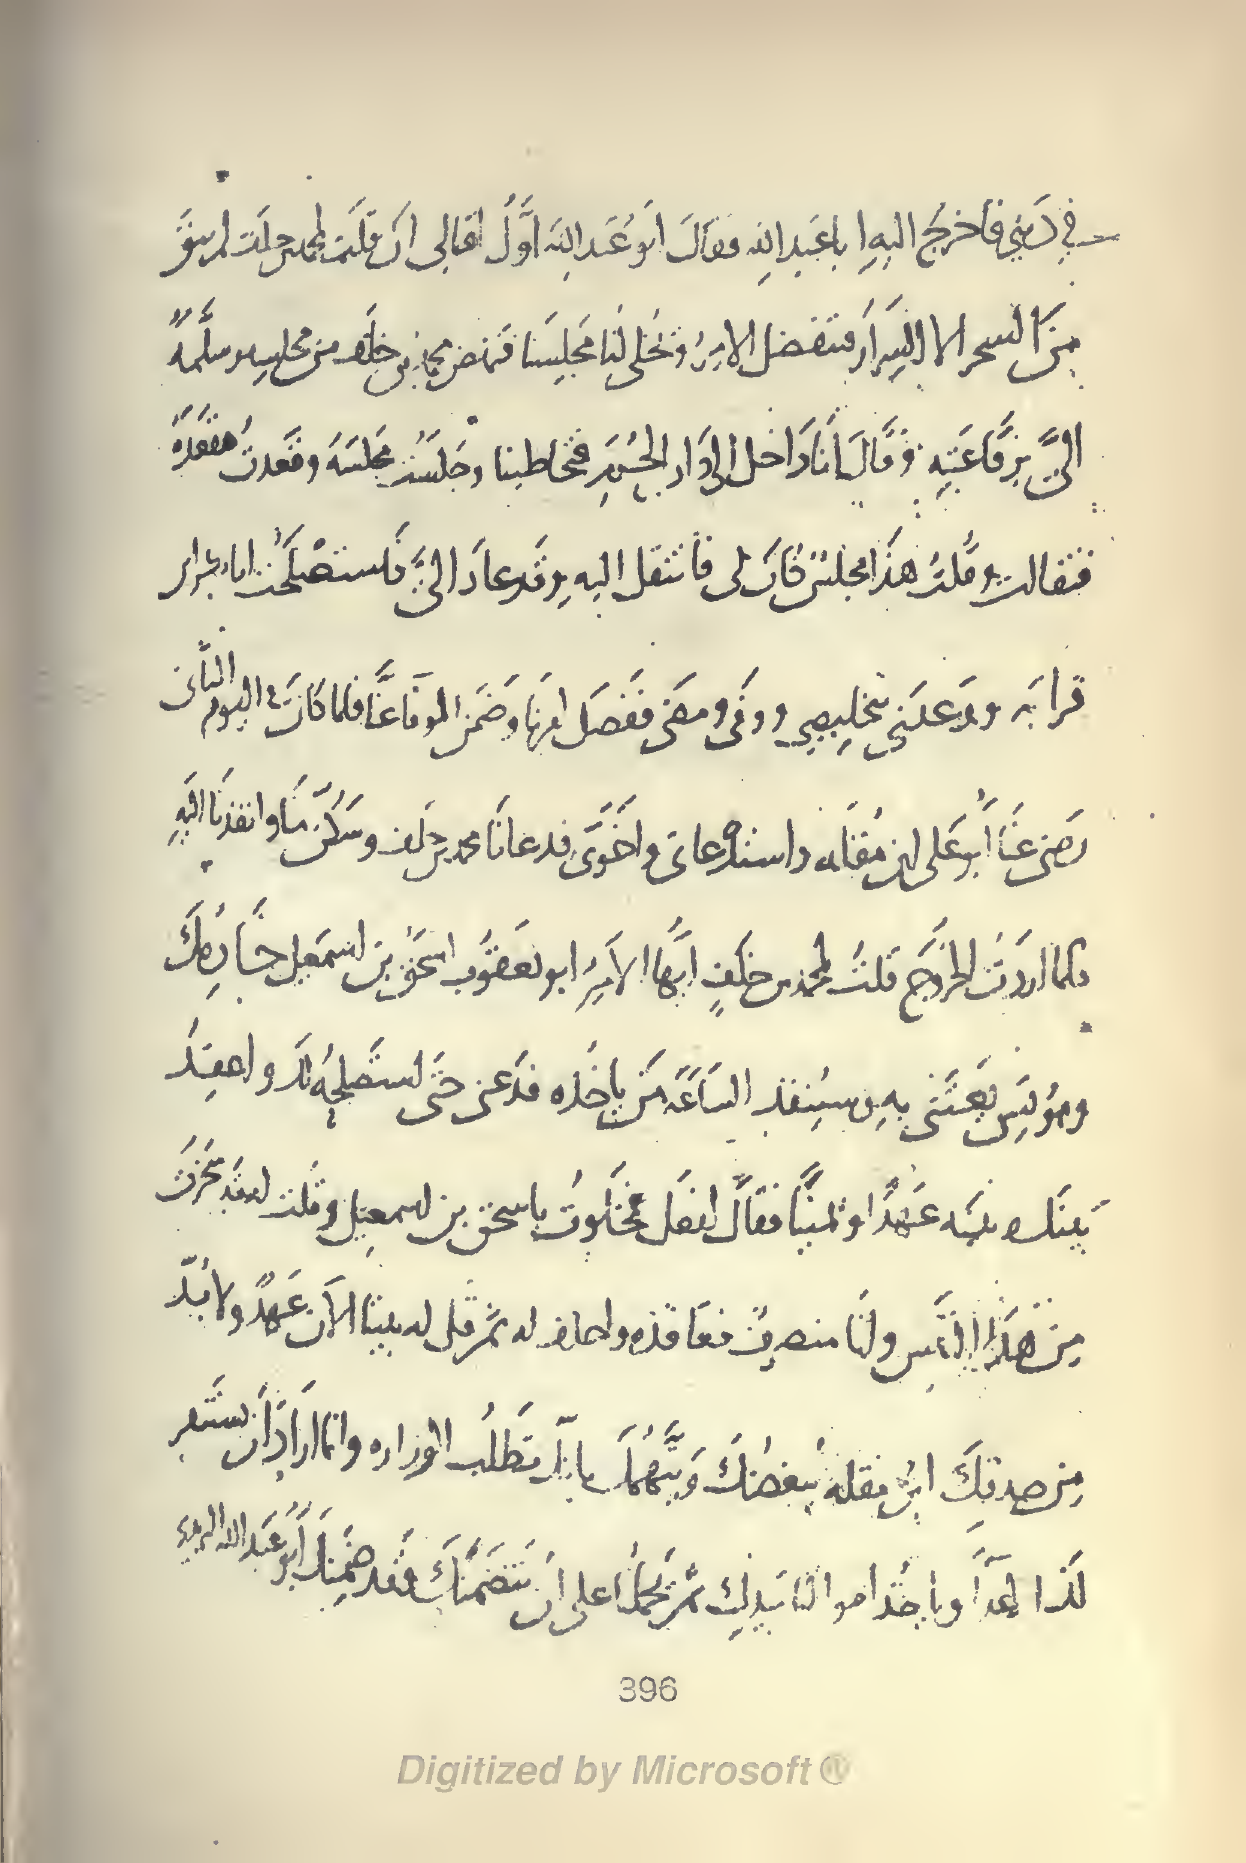 في دَيني فاخرج اليهِ ابا عَبدِ اللهِ فقالَ ابَو عَبد اللهَ اوّلُ اقبالى ان قلت لمحمد بن خلف لم يبقَ
من السحر الا اليسير فتفضل الامير وتخلى لنا مجلِسَنا فنهض محمد بن خلف من مجلسِه وسلّمهُ
اليّ برقاعَتِه وقالَ انا داخل الى دار الحُرم فتخاطبنا وجلستُ مجلسَه وقعدتُ مقعدهُ
وقلتُ هذَا مجلسٌ كان لى فانتقل اليهِ وقد عادَ الىّ فاستصلحت
قرابه ووعدني بتخليصي ووفى ومضى ففصل امرنا وضمن المونا عنّا فلما كانَ فى اليوم الثاني
رضى عنّا أبو على ابن مُقله واستدعانى واخوىّ فدعانا محمد بن خلف وسكّن منّا وانفذنا اليهِ
فلما اردتُ الخروج قلتُ لمحمد بن خلفٍ ايّها الاميرُ ابو يعقوب اسحق بن اسمعيل جارك
ومونس يُعتنى بهِ وسيُنفذ الساعَة من ياخُذه فدَعنى حتى استصلحُه لك واعقد
بينَك وبينَه عَهدًا ويمينًا فقالَ افعَل فخلوتُ باسحق بن اسمعيل وقلت له قد تخرت
من هذا النحس ولنا منصرفٌ فعاقده واحلف له ثمّ قل له بيننا الآن عَهدٌ ولا بُدّ
من صدقِكَ ابن مقله يبغضُكَ ويتّهمُكَ بانّك تطلُب الوزاره وانما ارادَ أن يستتر
لذا لهذَا وياخُذ اموالنا بيدِك ثمّ يحملُنا على أن نتضمّنك فقد ضمِنك أبُو عَبد الله البريدى
396
Digitized by Microsoft ®